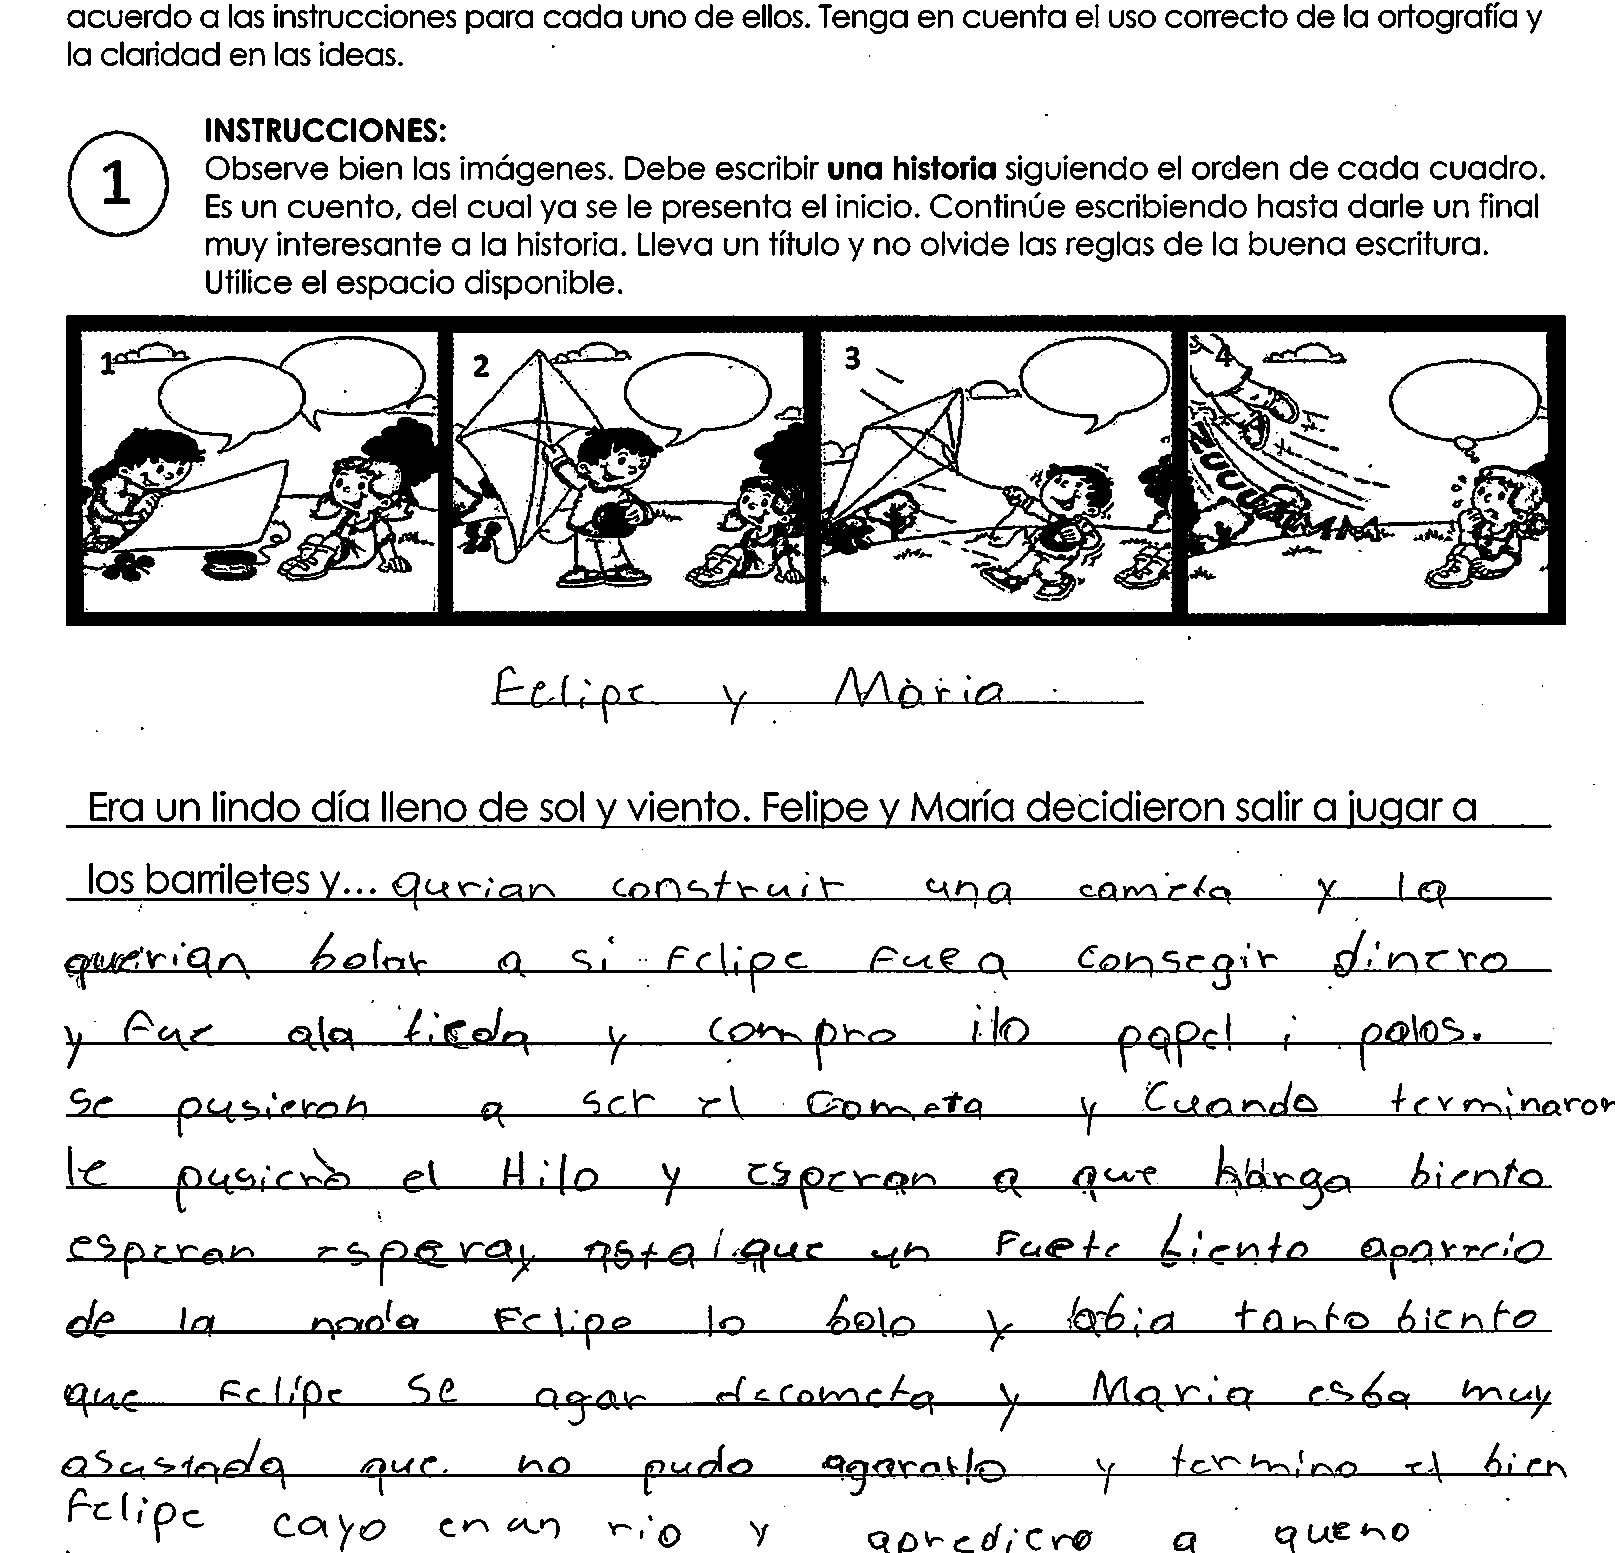 acuerdo a las instrucciones para cada uno de ellos. Tenga en cuenta el uso correcto de la ortografía y
la claridad en las ideas.
1
INSTRUCCIONES:
Observe bien las imágenes. Debe escribir una historia siguiendo el orden de cada cuadro.
Es un cuento, del cual ya se le presenta el inicio. Continúe escribiendo hasta darle un final
muy interesante a la historia. Lleva un título y no olvide las reglas de la buena escritura.
Utilice el espacio disponible.
1 2 3 4
Felipe y Maria
Era un lindo día lleno de sol y viento. Felipe y María decidieron salir a jugar a
los barriletes y... qurian construir una cometa y la
querian bolar a si Felipe fue a consegir dinero
y fue ala tieda y compro ilo papel i palos.
se pusieron a ser el cometa y Cuando terminaron
le pusiero el Hilo y esperan a que harga biento
esperan espera y astal que un Fuete biento aparecio
de la nada Felipe lo bolo y abia tanto biento
que Felipe se agar decometa y Maria esba muy
asustada que no pudo agararlo y termino el bien
Felipe cayo en un rio y aprediero a queno